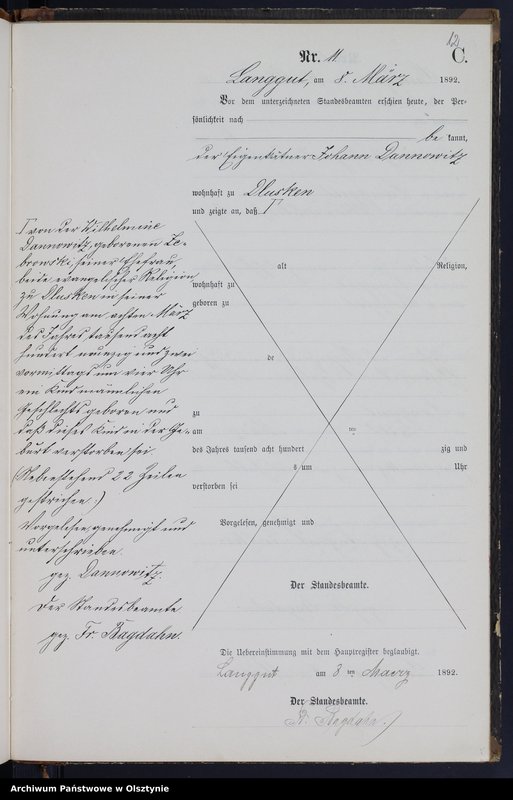 12
Nr. 11
C.
Langgut, am 8. März 1892.
Vor dem unterzeichneten Standesbeamten erschien heute, der Per-
sönlichkeit nach
be kannt,
der Eigenkätner Johann Dannowitz
wohnhaft zu Dlusken
und zeigte an, daß Γ
Γ von der Wilhelmine
Dannowitz, geborenen Ze-
browski, seiner Ehefrau,
beide evangelischer Religion
zu Dlusken in seiner
Wohnung am achten März
des Jahres tausend acht
hundert neunzig und zwei
vormittags um vier Uhr
ein Kind männlichen
Geschlechts geboren und
daß dieses Kind in der Ge-
burt verstorben sei.
(Nebenstehend 22 Zeilen
gestrichen.)
Vorgelesen, genehmigt und
unterschrieben.
gez. Dannowitz.
Der Standesbeamte
gez. Fr. Bagdahn.
alt Religion,
wohnhaft zu
geboren zu
de
zu
am ten
des Jahres tausend acht hundert zig und
s um Uhr
verstorben sei
Vorgelesen, genehmigt und
Der Standesbeamte.
Die Uebereinstimmung mit dem Hauptregister beglaubigt.
Langgut am 8 ten Maerz 1892.
Der Standesbeamte.
Fr. Bagdahn
Archiwum Państwowe w Olsztynie